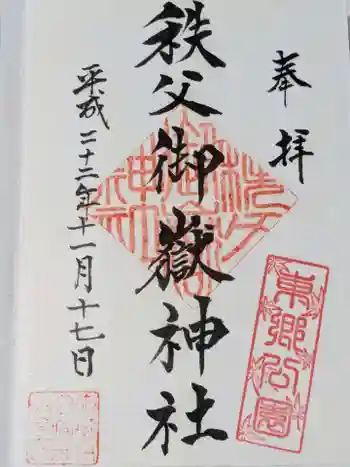 奉拝
秩父御嶽神社
平成二十二年十一月十七日
東郷公園